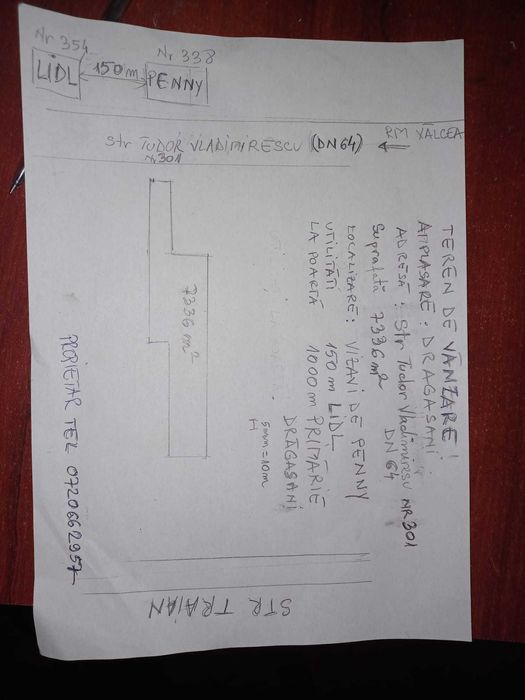 Nr 354
Nr 338
LIDL
150 m
PENNY
RM VÂLCEA
Str TUDOR VLADIMIRESCU (DN 64)
Nr 301
7336 m²
TEREN DE VÂNZARE!
AMPLASARE: DRAGASANI
ADRESĂ: Str Tudor Vladimirescu NR 301
DN 64
Suprafată 7336 m²
LOCALIZARE: VIZAVI DE PENNY
UTILITĂTI 150 m LIDL
LA POARTĂ 1000 m PRIMĂRIE
DRĂGĂSANI
5mm = 10m
PROPIETAR TEL 0720662957
STR TRAIAN